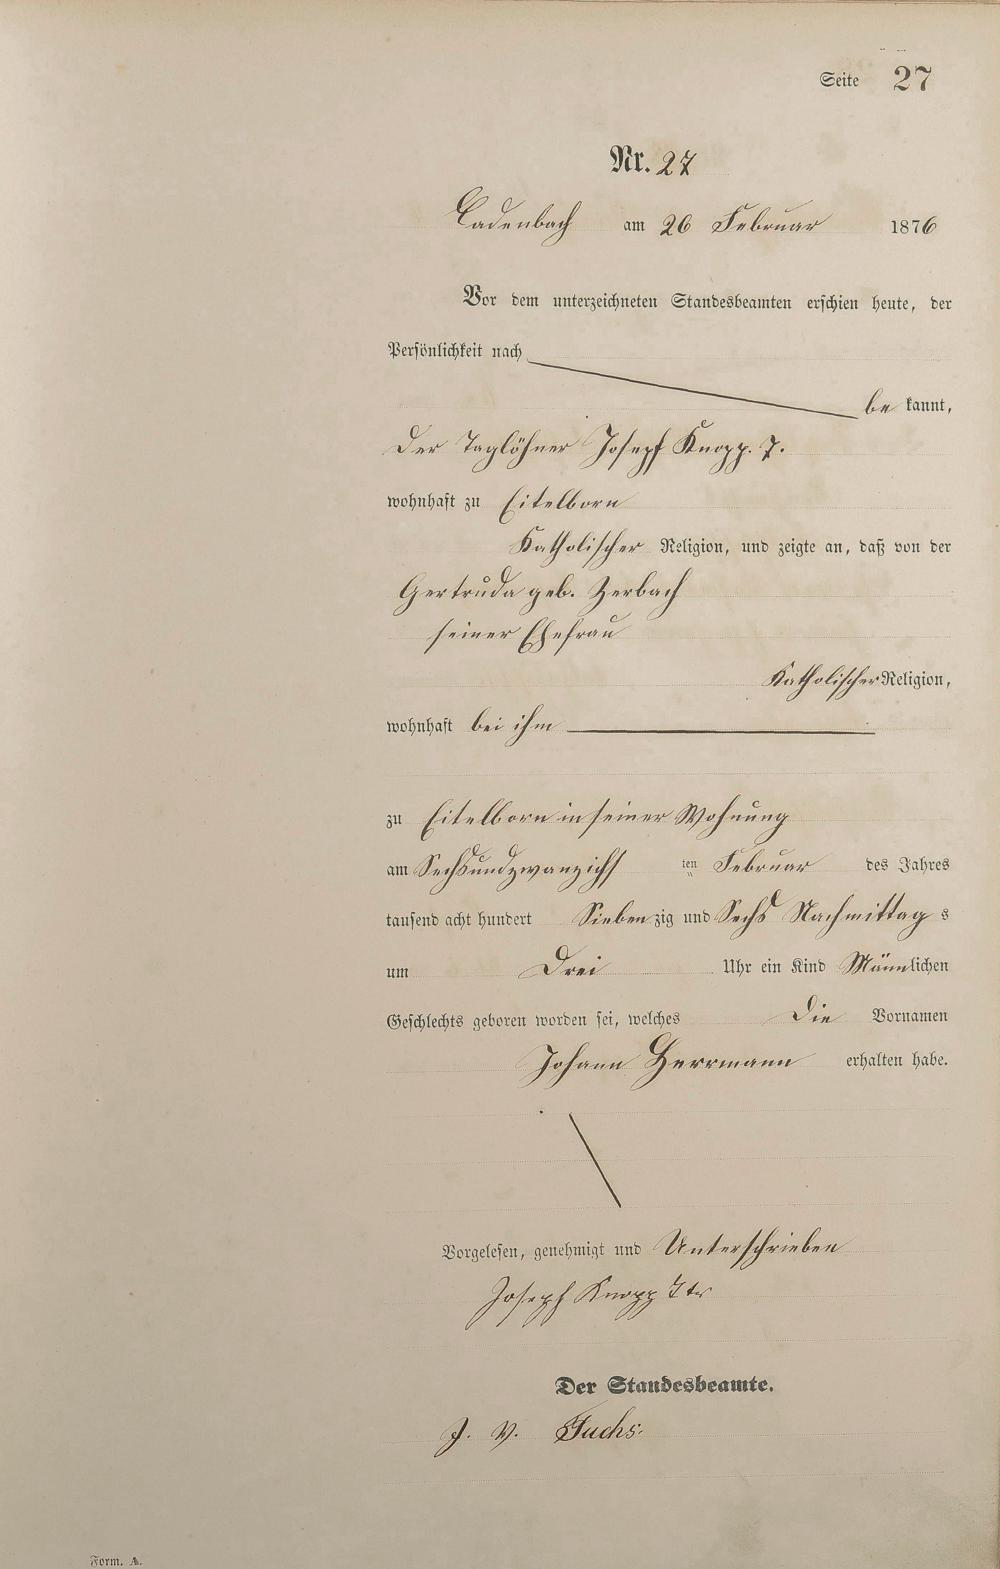 Seite 27
Nr. 27
Cadenbach am 26 Februar 1876
Vor dem unterzeichneten Standesbeamten erschien heute, der
Persönlichkeit nach
be kannt,
Der Taglöhner Josepf Knopp. 7.
wohnhaft zu Eitelborn
Katholischer Religion, und zeigte an, daß von der
Gertruda geb. Zerbach
seiner Ehefrau
Katholischer Religion,
wohnhaft bei ihm
zu Eitelborn in seiner Wohnung
am Sechsundzwanzichs ten Februar des Jahres
tausend acht hundert Sieben zig und Sechs Nachmittag s
um Drei Uhr ein Kind Männlichen
Geschlechts geboren worden sei, welches Die Vornamen
Johann Herrmann erhalten habe.
Vorgelesen, genehmigt und Unterschrieben
Joseph Knopp 7ter
Der Standesbeamte.
J. V. Fuchs.
Form. A.